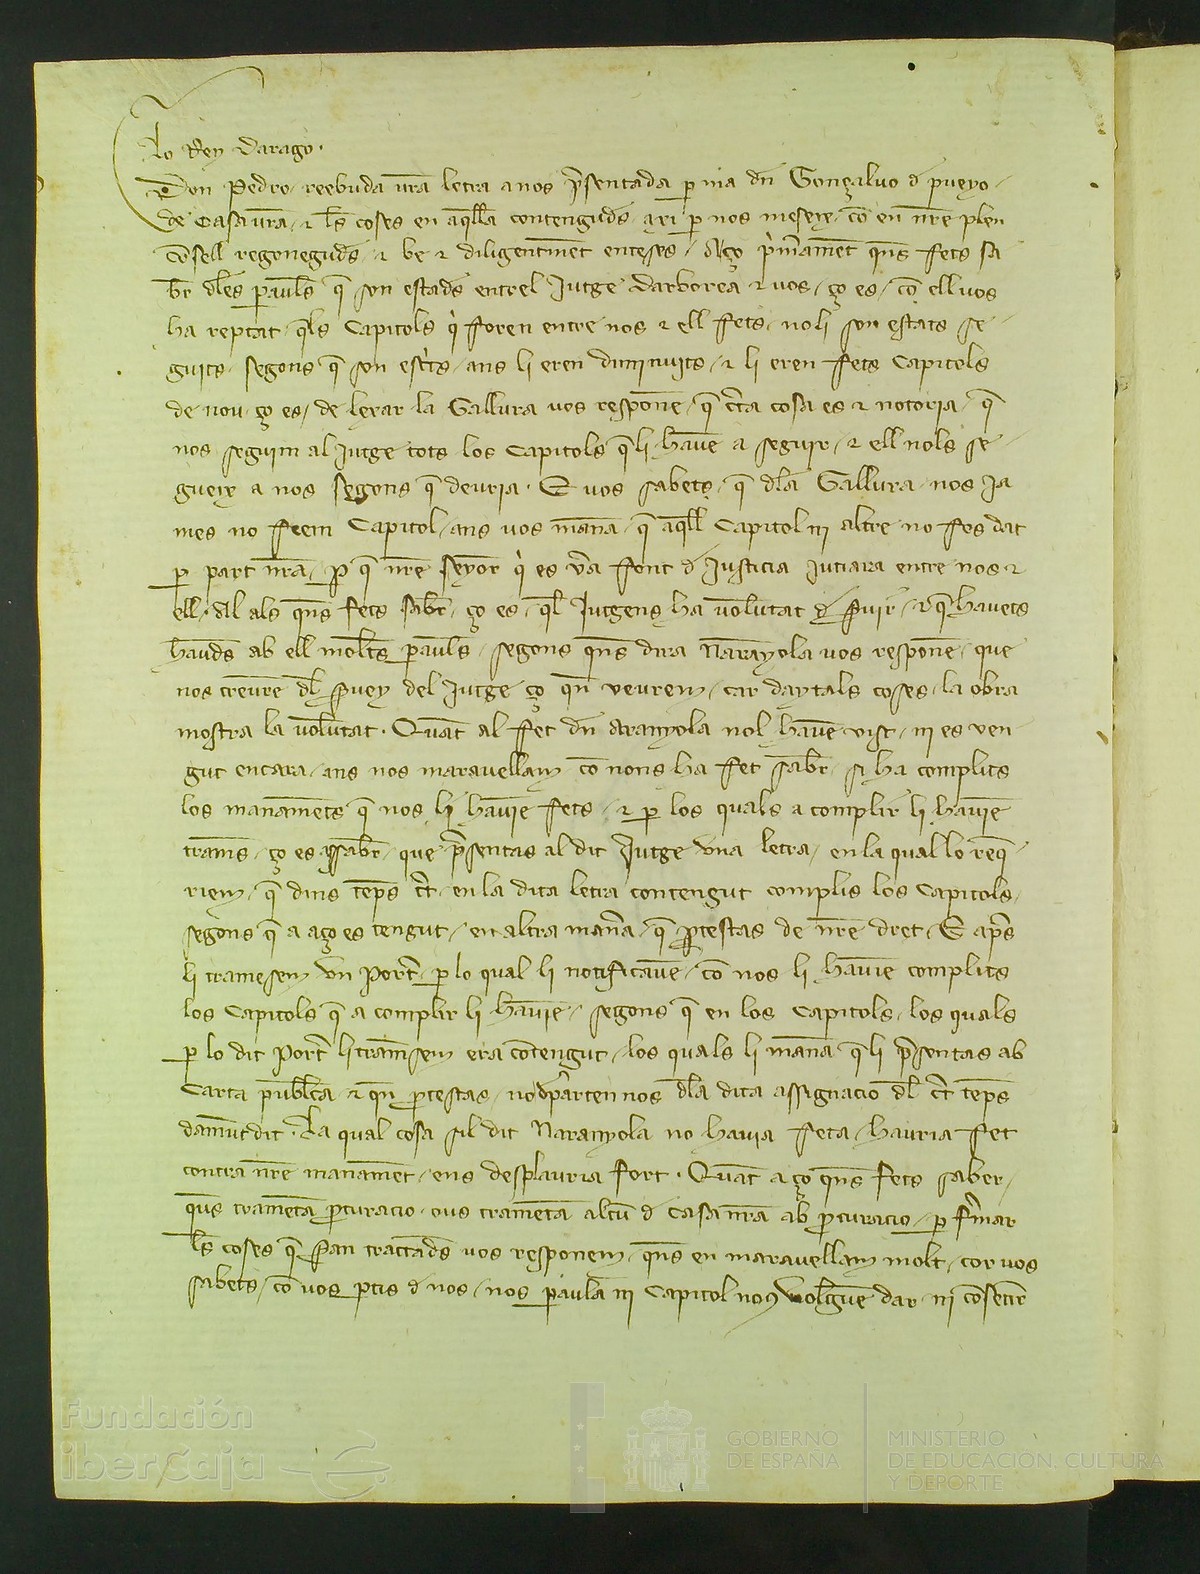 Lo Rey Darago.
Don Pedro, reebuda vrā letra a nos p̄sentada per ma dn̄ Gonçalvo d pueyo,
de Casa vrā, ⁊ les coses en aqll̄a contengudes, axi per nos meseyx, cō en nr̄e plen
cōsell regonegudes, ⁊ be ⁊ diligentmēt enteses, Aço p̄merament qns̄ fets sa
br̄ dles̄ paraul̄s q̄ son estades entrel Jutge Darborea ⁊ vos, ço es, cō ell vos
ha reptat, qls̄ Capitols qi foren entre nos ⁊ ell fets, noli son estats se-
guits, segons q̄ son escrits, ans li eren diminuits, ⁊ li eren fets Capitols
de nou, ço es, de lexar la Gallura vos responē, q̄ cer̄ta cosa es ⁊ notoria, q̄
nos seguim al Jutge tots los Capitols q̄ li havē a seguir, ⁊ ell nols se-
gueix a nos segons q̄ deuria. E vos sabets, q̄ dla Gallura, nos ja
mes no feem Capitol, ans vos manā, q̄ aqll̄ Capitol ni altre no fos dat
per part nrā, p q̄ nr̄e seyor qi es vera font d Justicia jutiara entre nos ⁊
ell. Al als qns̄ fets sabr̄, ço es, ql̄ Jutgens ha volūtat d Svir, ⁊ q̄ havets
haudes ab ell moltes paraul̄s, segons qns̄ dira Naranyola vos responē, que
nos creurē dl Svey del Jutge ço qn̄ veurem, car daytals coses, la obra
mostra la volūtat. Quāt al fet dn̄ Aranyola nol havē vist, ni es ven-
gut encara, ans nos maravellam cō nons ha fet sabr̄, si ha complits
los manamēts q̄ nos li haviē fets, ⁊ per los quals a complir li haviē
tramēs, ço es assabr̄, que p̄sentas al dit Jutge una letra, en la qual lo req̄-
riem, q̄ dins tēps cert̄ en la dita letra contengut complis los Capitols,
segons q̄ a aço es tengut, en altra manera, q̄ protestas de nr̄e dret, E apres
li tramesem un Porter̄, per lo qual li notificavē, cō nos li haviē complits
los Capitols q̄ a complir li haviē, segons q̄ en los Capitols, los quals
per lo dit Porter̄ li tramesem era cōtengut, los quals li manā q̄ li p̄sentas ab
Carta publica ⁊ qn̄ protestas, no dpartennos dla dita assignacio dl cert̄ tēps
damūt dit. La qual cosa sil dit Naranyola no havia feta, hauria fet
contra nr̄e manamēt, ens desplauria fort. Quāt a ço qns̄ fets saber,
qus̄ trametā procuracio, ous trametā alcū d Casa nrā ab procuracio, per fermar
les coses q̄ Svan tractades vos responem, qns̄ en maravellam molt, cor vos
sabets, cō vos ptis d nos, nos paraula ni Capitol nous volguē dar, ni cōsentir
Fundación
iberCaja
GOBIERNO
DE ESPAÑA
MINISTERIO
DE EDUCACIÓN, CULTURA
Y DEPORTE